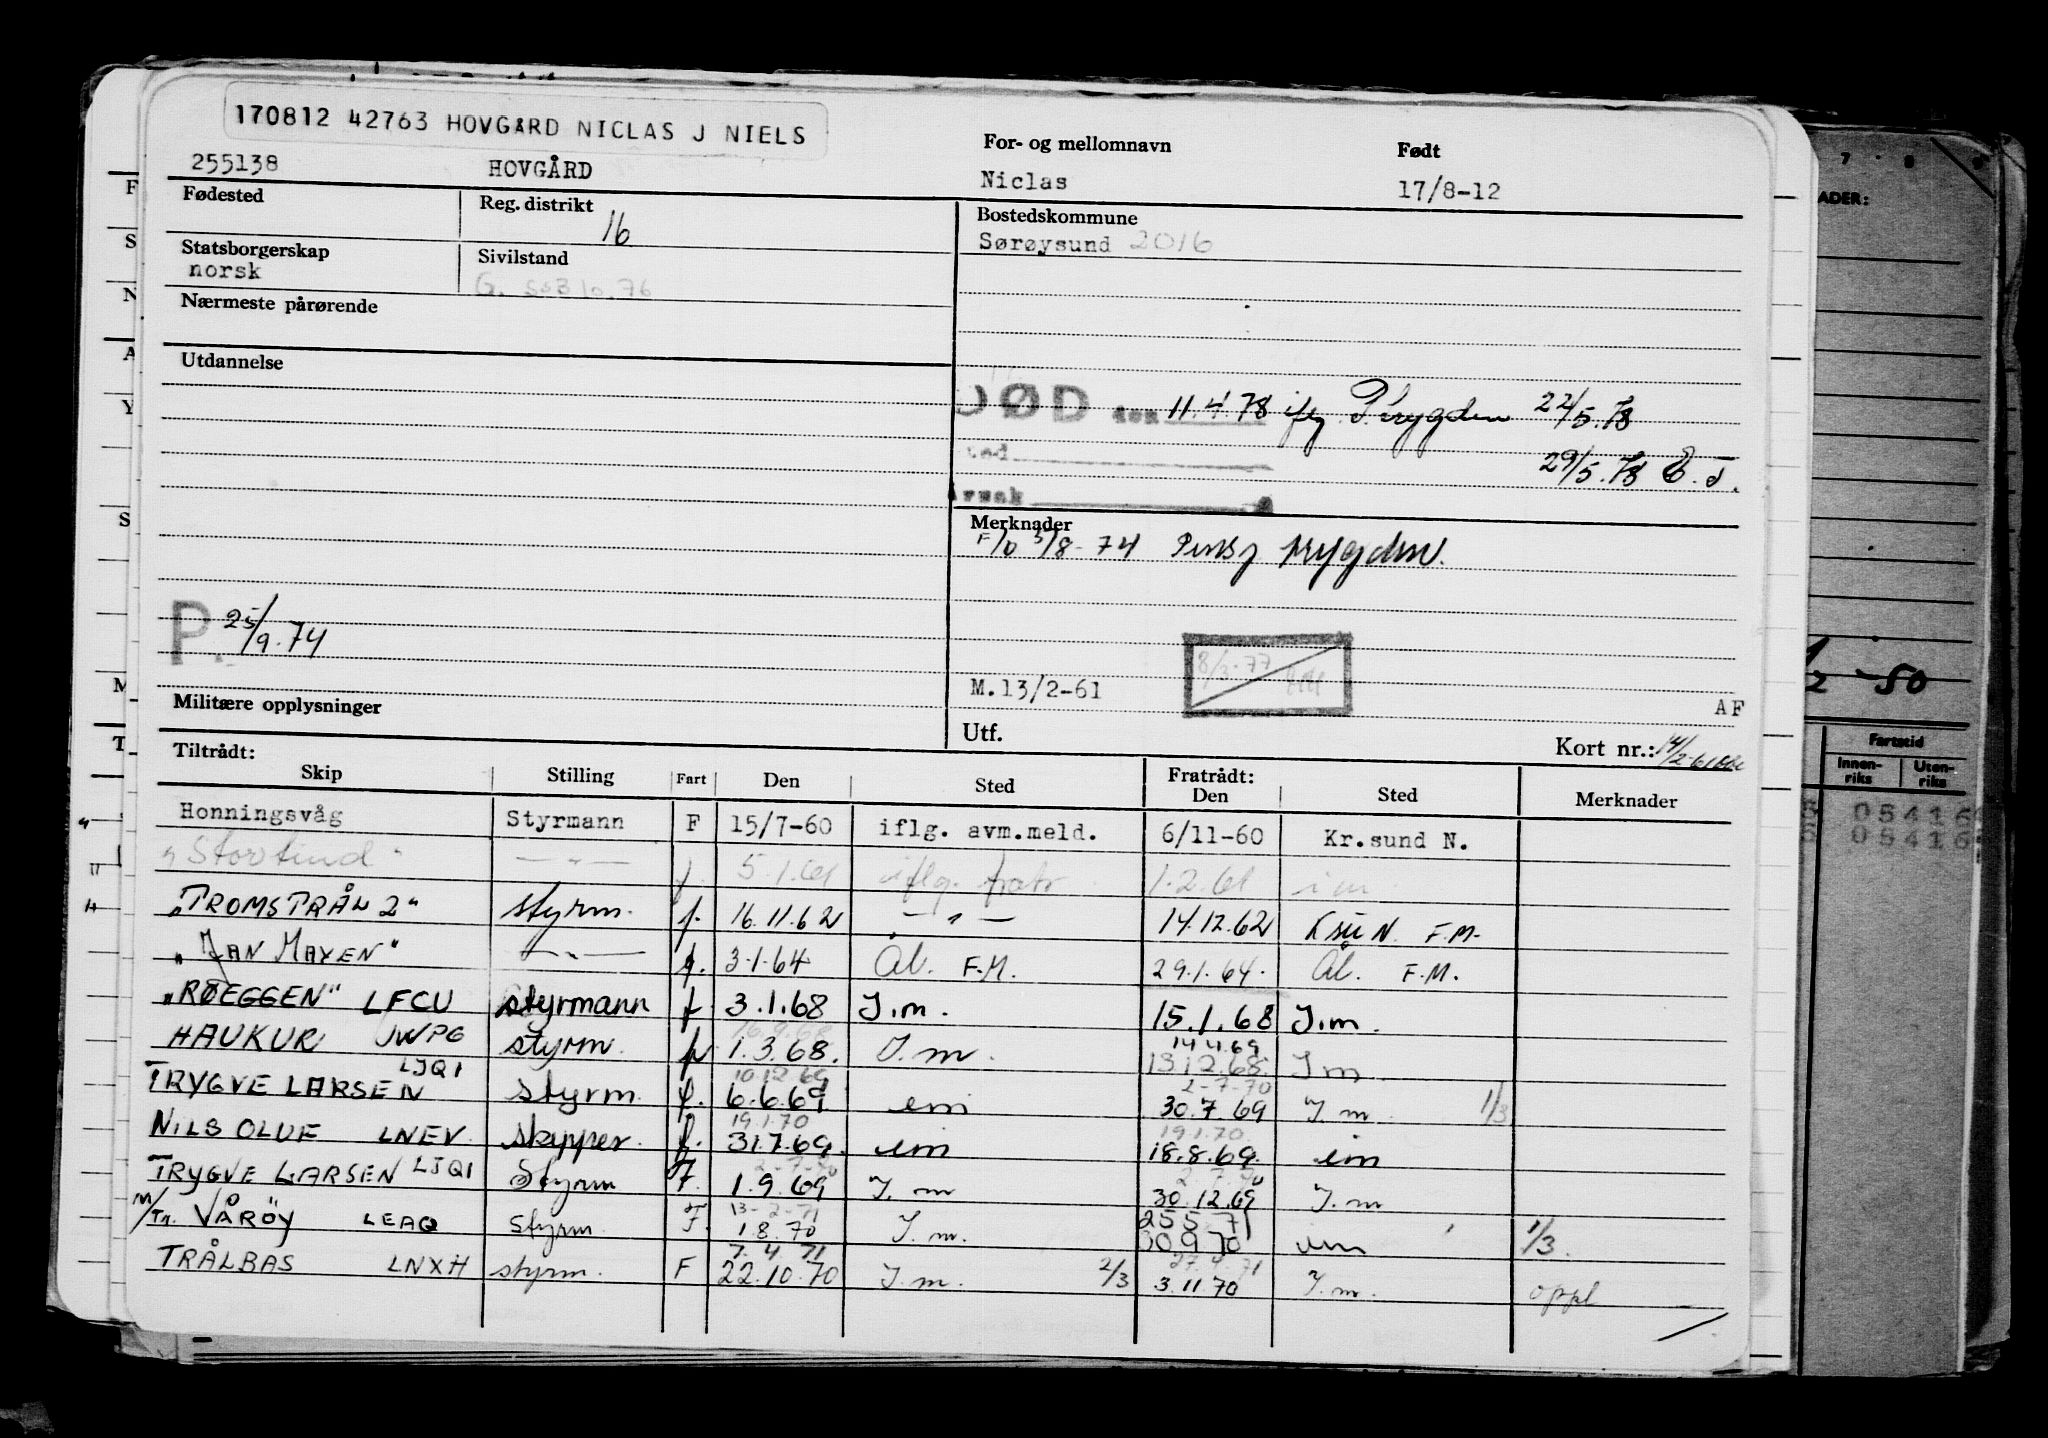 170812 42763 HOVGÅRD NICLAS J NIELS
255138 HOVGÅRD
For- og mellomnavn
Niclas
Født
17/8-12
Fødested
Reg. distrikt
16
Bostedskommune
Sørøysund 2016
Statsborgerskap
norsk
Sivilstand
G. SSB 10.76
Nærmeste pårørende
Utdannelse
DØD den 11.4.78 iflg. P.trygden 22/5.78
sted
29/5.78 E.T.
årsak
Merknader
F/O 3/8-74 Pensj trygden.
P. 25/9.74
8/3-77
M.13/2-61
AF
Militære opplysninger
Utf.
Kort nr.: 14/2-61
Tiltrådt:
Skip Stilling Fart Den Sted Fratrådt: Den Sted Merknader
Honningsvåg Styrmann F 15/7-60 iflg. avm.meld. 6/11-60 Kr.sund N.
"Stortind" — " — f. 5.1.61 iflg. fratr. 1.2.61 i.m.
"TROMSTRÅL 2" styrm. f. 16.11.62 — " — 14.12.62 Ksu N. F.M.
"JAN MAYEN" — " — f. 3.1.64 Ål. F.M. 29.1.64. Ål. F.M.
"RØEGGEN" LFCU styrmann f 3.1.68 I.m. 15.1.68 I.m.
16.9.68 14.4.69
HAUKUR JWPG styrm. f 1.3.68. I.m. 13.12.68. I m.
10.12.69 2-7-70
TRYGVE LARSEN LJQI styrm. f. 6.6.69 eim 30.7.69 I.m. 1/3
19.1.70 19.1.70
NILS OLUF LNEV skipper. f. 31.7.69. eim 18.8.69. eim
2-7-70 2.7.70
TRYGVE LARSEN LJQI Styrm F. 1.9.69 I.m 30.12.69 I.m
13-2-71 25 5 71
M/Tr. VÅRÖY LEAQ styrm. F. 1.8.70 I.m. 30 9 70 im 1/3.
7.4.71 27.4.71
TRÅLBAS LNXH styrm. F 22.10.70 I.m. 2/3 3.11.70 I.m. oppl
ADER:
1/2 -50
Fartstid
Innenriks
Utenriks
05416
05416